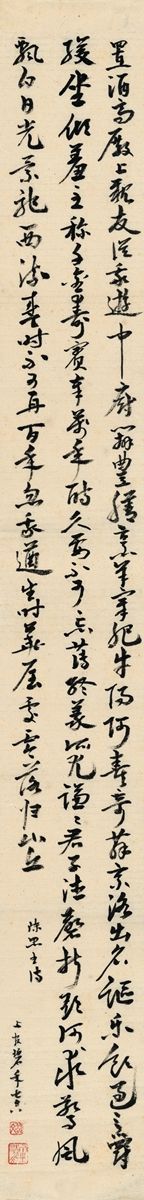 置酒高殿上親友從我遊中廚辦豐膳烹羊宰肥牛陽阿奏奇舞京洛出名謳樂飲過三爵
緩傾羞主稱千金壽賓奉萬年酬久要不可忘薄終義所尤謙謙君子德磬折欲何求驚風
飄白日光景馳西流盛時不可再百年忽我遒生時華屋處零落歸山丘
陳思王詩
上官碧